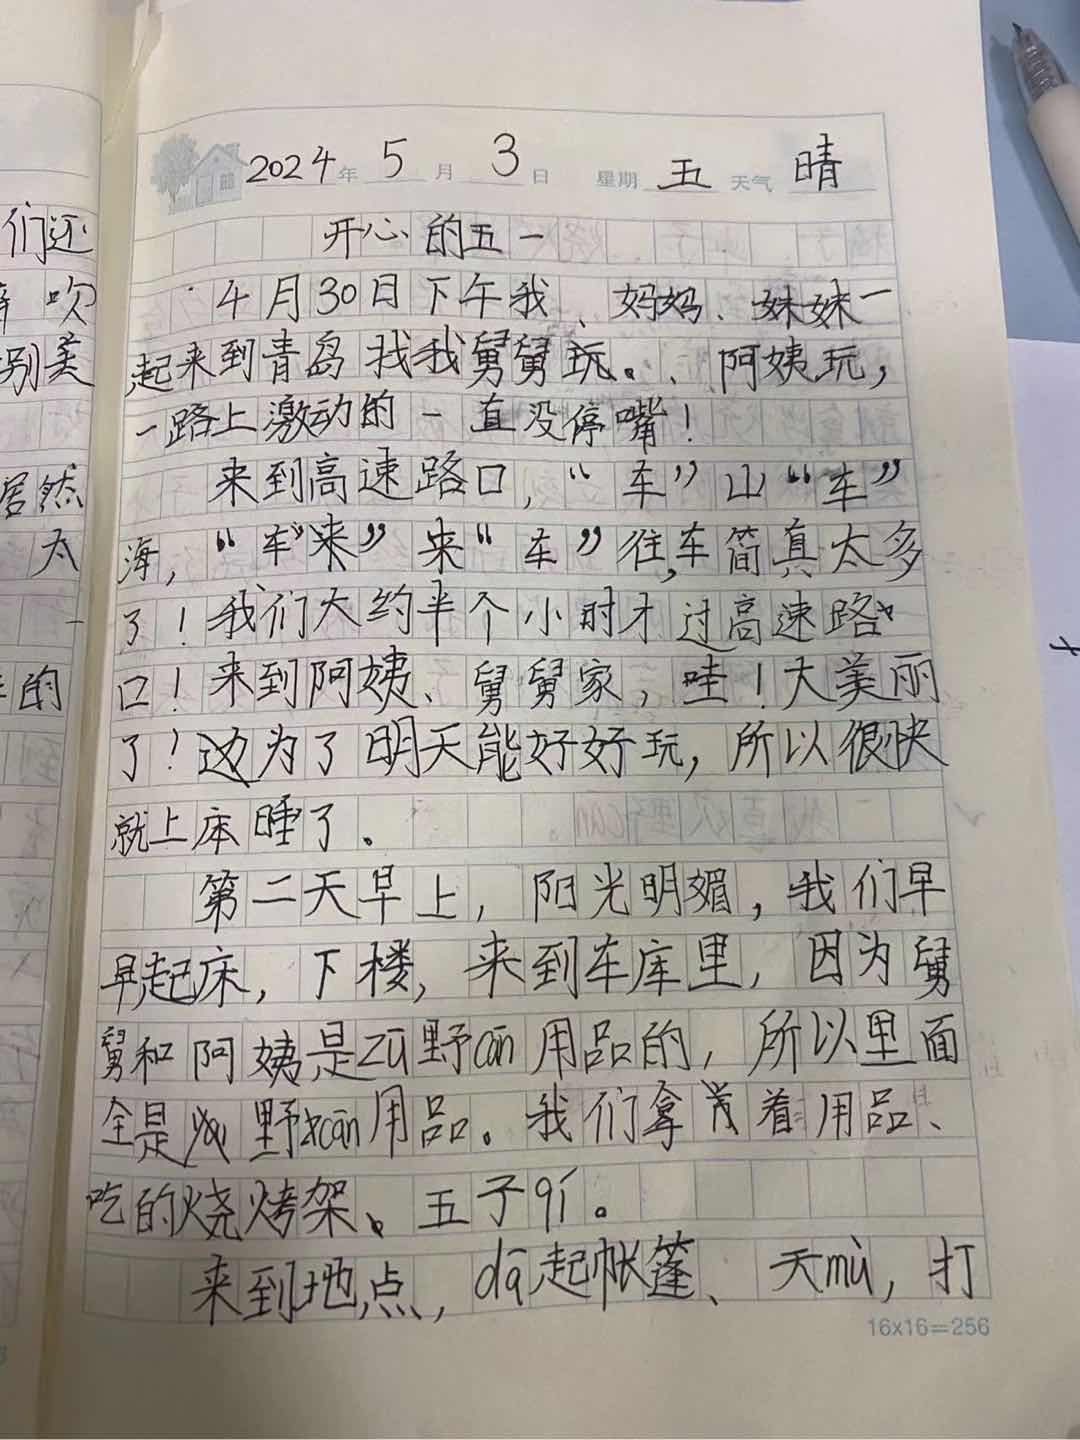 们还
吹
别美
居然
太
一
的
2024年 5月 3日 星期 五 天气 晴
开心的五一
4月30日下午我、妈妈、妹妹一
起来到青岛找我舅舅玩。、阿姨玩,
一路上激动的一直没停嘴!
来到高速路口,“车”山“车”
海,“车”来”来“车”往,车简真太多
了!我们大约半个小时才过高速路
口!来到阿姨、舅舅家,哇!大美丽
了!边为了明天能好好玩,所以很快
就上床睡了。
第二天早上,阳光明媚,我们早
早起床,下楼,来到车库里,因为舅
舅和阿姨是zū野cān用品的,所以里面
全是野cān用品。我们拿着用品、
吃的烧烤架、五子qí。
来到地点,dā起帐篷、天mù,打
16x16=256